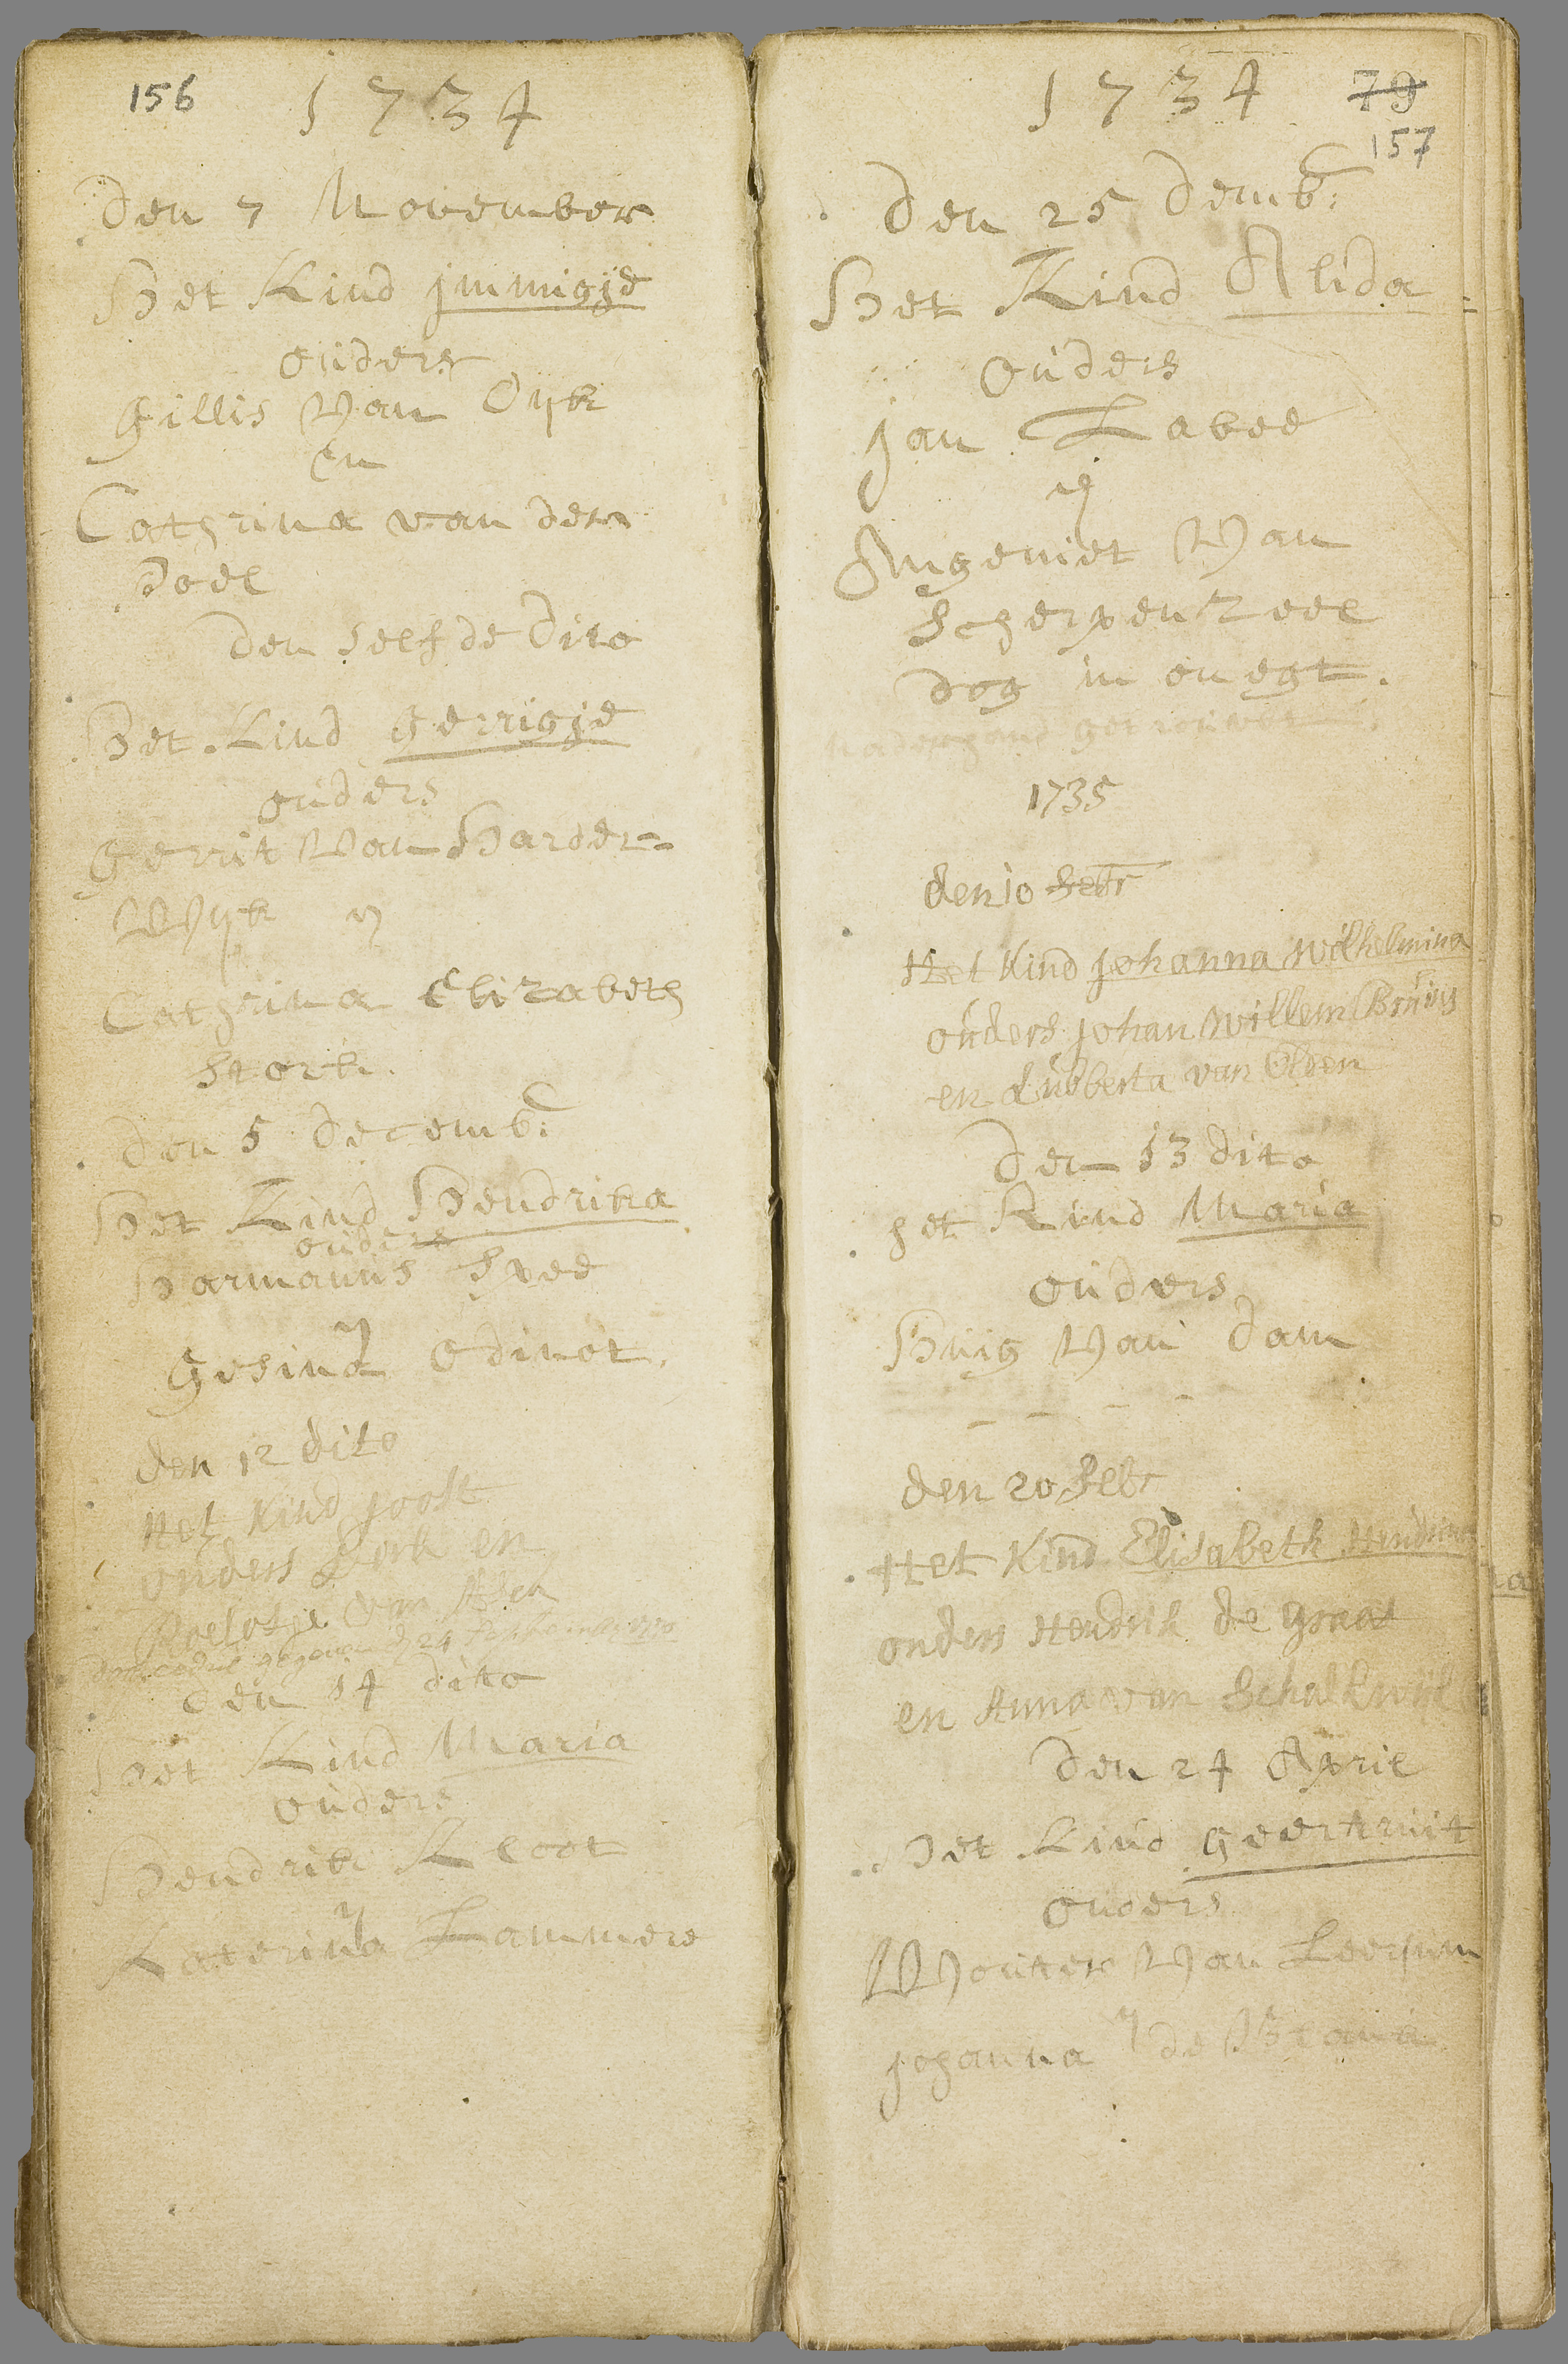 156
1734
Den 7 November
Het Kind jmmigje
ouders
Gillis Van Dijk
en
Cathrina van der
Poel
Den selfde Dito
Het Kind Gerrigje
ouders
Gerrit Van Harder-
Wijk
Cathrina Elizabeth
Stork.
Den 5 Decemb:
Het Kind Hendrika
ouders
Harmanus Spee
Gesina Edinot.
den 12 dito
Het Kind joost
ouders Derk en
Roelofje van
24 September
Den 14 dito
Het Kind Maria
ouders
Hendrik Kloot
en
Katerina Lammere
1734
79
157
Den 25 Demb:
Het Kind Alida
ouders
jan Labee
en
Angeniet Van
Scherpenzeel
dog in onegt.
naderhand getrouwt
1735
den 10 Febr
Het Kind Johanna Wilhelmina
ouders Johan Willem Bruins
en Lubberta van Olden
Den 13 dito
het Kind Maria
ouders
Huig Van Dam
- - - -
den 20 Febr
Het Kind Elisabeth
ouders Hendrik de Graaf
en Anna van Schalkwijk
Den 24 April
Het Kind Geertruit
ouders
Wouter Van Leersum
en
johanna de